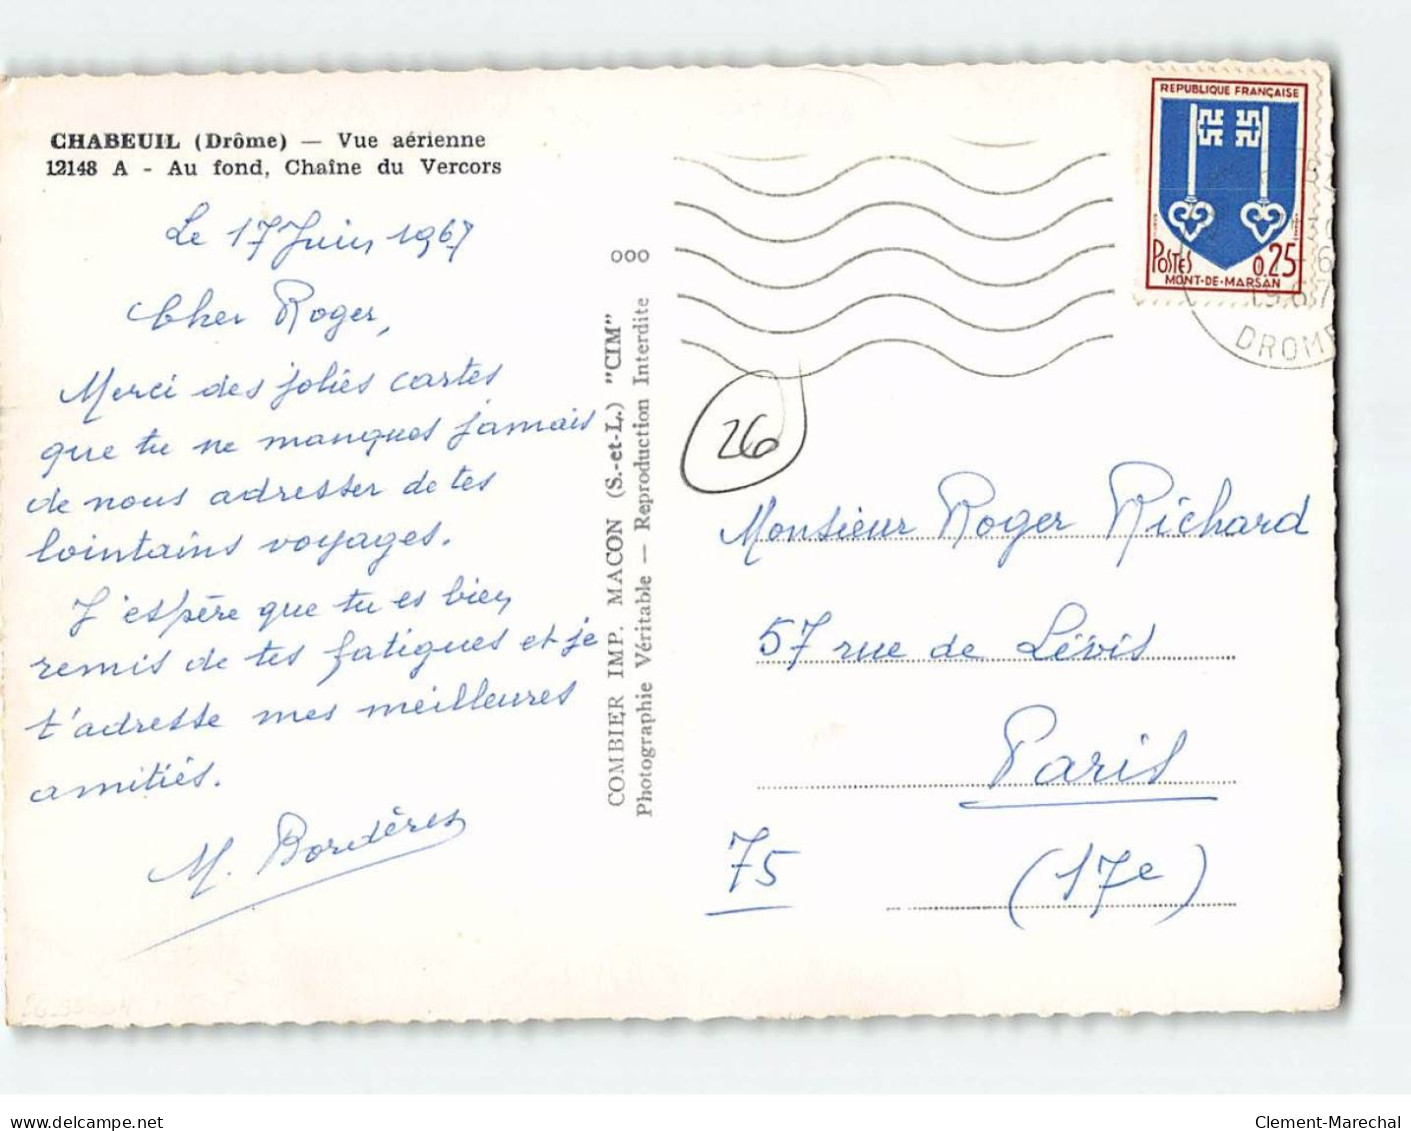 CHABEUIL (Drôme) — Vue aérienne
12148 A - Au fond, Chaîne du Vercors
Le 17 Juin 1967
Cher Roger,
Merci des jolies cartes
que tu ne manques jamais
de nous adresser de tes
lointains voyages.
J'espère que tu es bien
remis de tes fatigues et je
t'adresse mes meilleures
amitiés.
M. Bordères
COMBIER IMP. MACON (S.-et-L.) "CIM"
Photographie Véritable — Reproduction Interdite
ooo
REPUBLIQUE FRANÇAISE
POSTES 0.25
MONT-DE-MARSAN
1967
DROME
26
Monsieur Roger Richard
57 rue de Lévis
Paris
75 (17e)
delcampe.net
Clement-Marechal